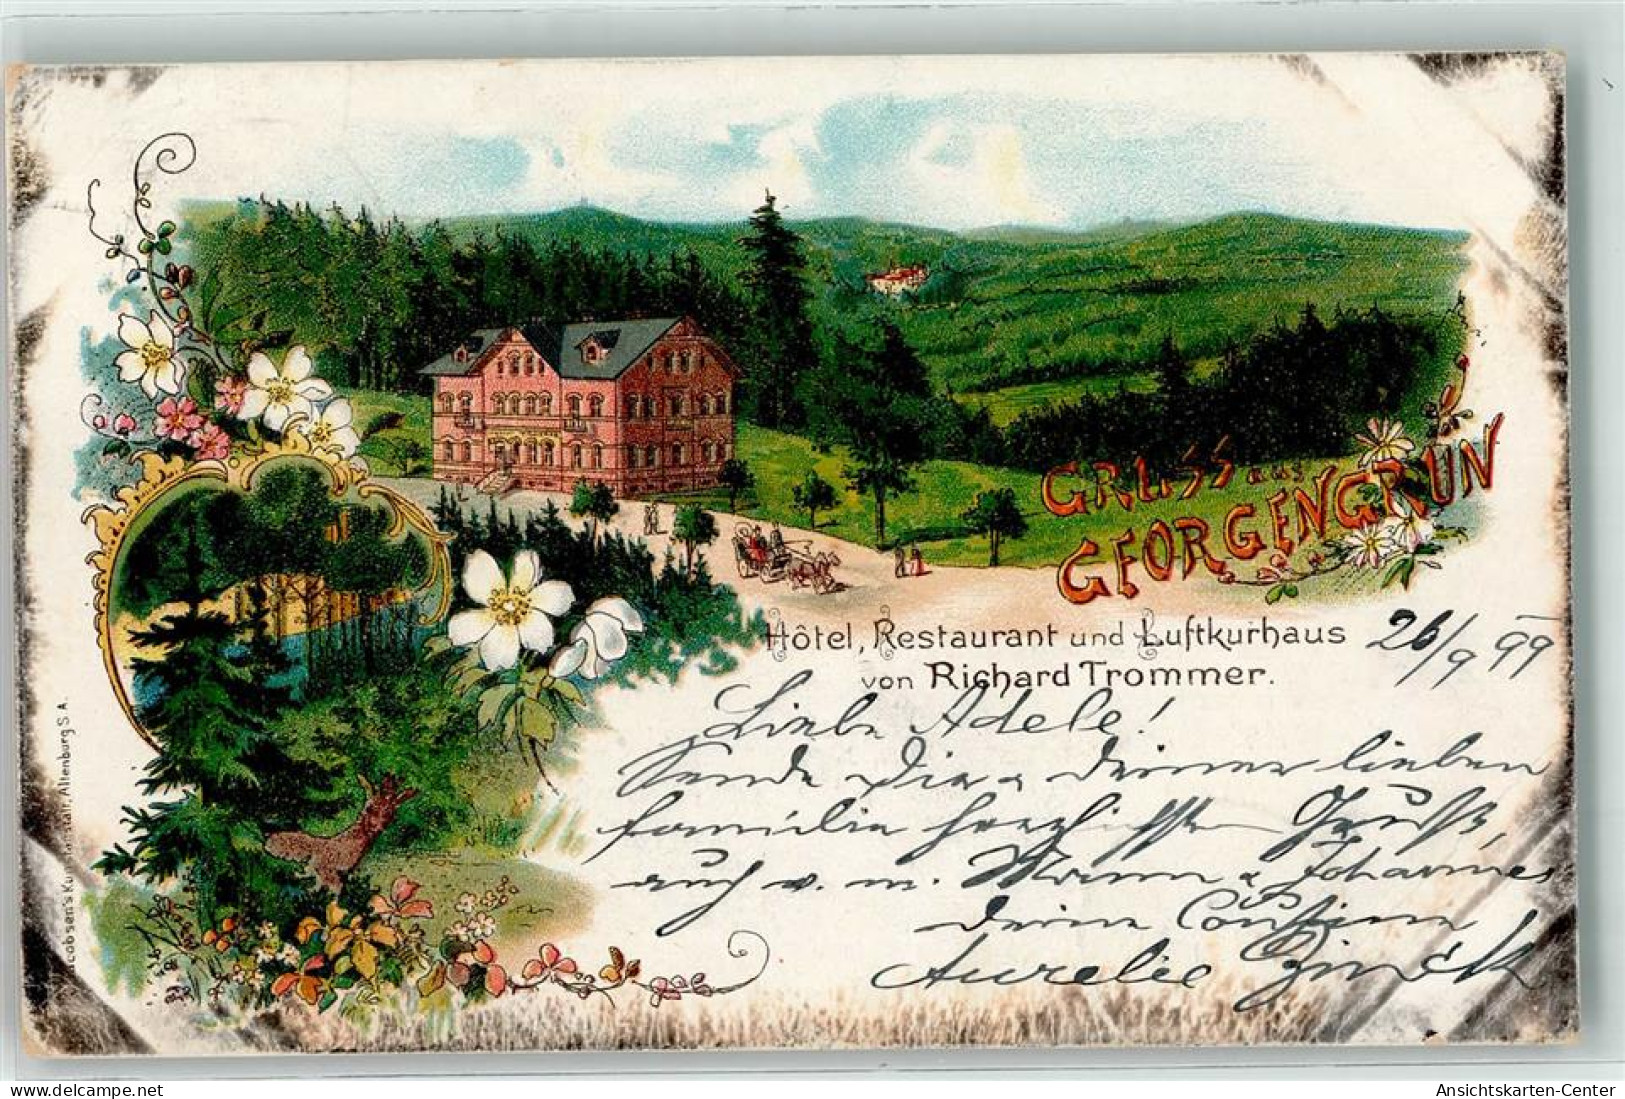 GRUSS aus
GEORGENGRÜN
Hôtel, Restaurant und Luftkurhaus
von Richard Trommer.
26/9 99
Liebe Adele!
Sende Dir u. Deiner lieben
Familie herzlichsten Gruß,
auch v. m. Mann u. Johannes
Deine Cousine
Aurelie
Jacobsen's Kunstanstalt, Altenburg S.A.
www.delcampe.net
AnsichtsKarten-Center